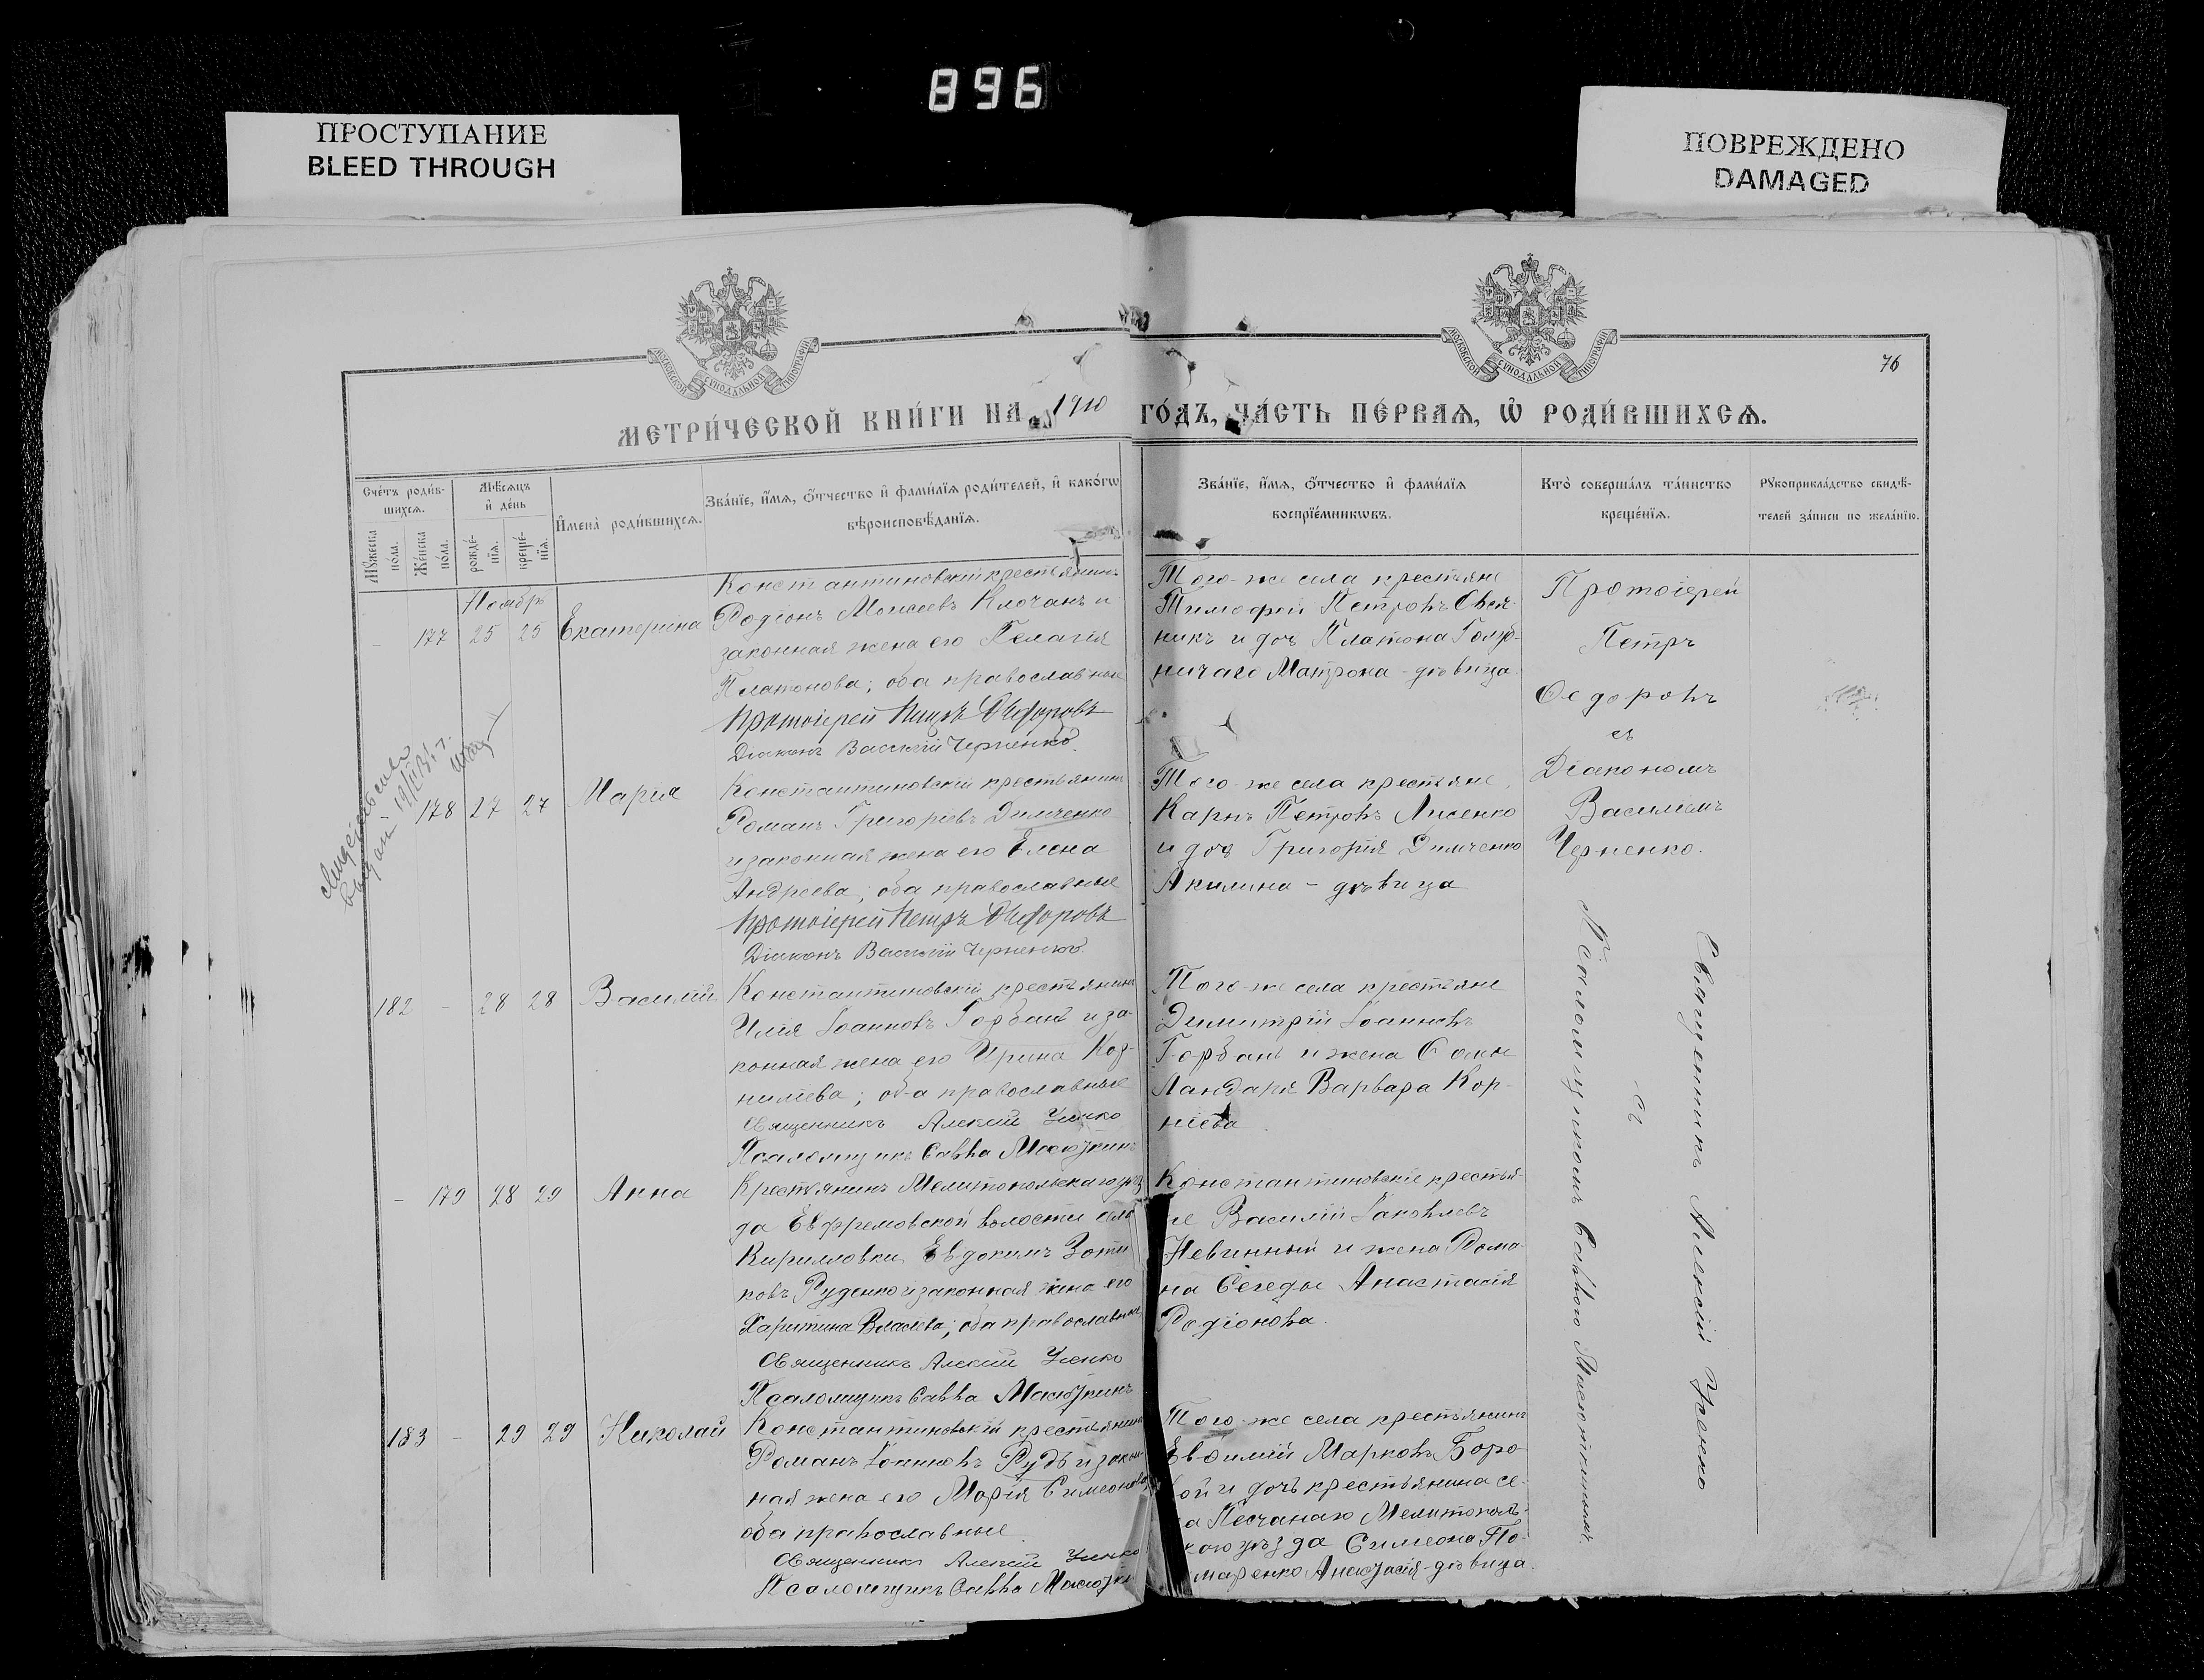 896
ПРОСТУПАНИЕ
BLEED THROUGH
ПОВРЕЖДЕНО
DAMAGED
МОСКОВСКОЙ СѴНОДАЛЬНОЙ ТИПОГРАФІИ
МОСКОВСКОЙ СѴНОДАЛЬНОЙ ТИПОГРАФІИ
76
МЕТРИ́ЧЕСКОЙ КНИ́ГИ НА 1910 ГО́ДЪ, ЧА́СТЬ ПЕ́РВАѦ, Ѽ РОДИ́ВШИХСѦ.
Сче́тъ роди́в-
шихсѧ.
Мꙋ́жеска
по́ла.
Же́нска
по́ла.
Мѣ́сѧцъ
и҆ де́нь
рожде́-
нїѧ.
креще́-
нїѧ.
И҆мена̀ роди́вшихсѧ.
Зва́нїе, и҆́мѧ, ѻ҆́тчество и҆ фами́лїѧ роди́телей, и҆ како́гѡ
вѣроисповѣ́данїѧ.
Зва́нїе, и҆́мѧ, ѻ҆́тчество и҆ фами́лїѧ
воспрїе́мникѡвъ.
Кто̀ соверша́лъ та́инство
креще́нїѧ.
Рꙋкоприкла́дство свидѣ́-
телей за́писи по жела́нїю.
Ноябр
- 177 25 25 Екатерина
Константиновскій крестьянинъ
Родіонъ Моисеевъ Клочанъ и
законная жена его Пелагія
Платонова; оба православные
Протоіерей Петръ Ѳедоровъ
Діаконъ Василій Черненко.
Того-же села крестьяне
Тимофей Петровъ
никъ и дочь Платона
ничаго Матрона - дѣвица.
Протоіерей
Петръ
Ѳедоровъ
съ
Діакономъ
Василіемъ
Черненко.
178 27 27 Марія
Константиновскій крестьянинъ
Романъ Григоріевъ Димченко
и законная жена его Елена
Андреева; оба православные
Протоіерей Петръ Ѳедоровъ
Діаконъ Василій Черненко
Того-же села крестьяне
Карпъ Петровъ Лисенко
и дочь Григорія Димченко
Акилина - дѣвица
182 - 28 28 Василій
Константиновскій крестьянинъ
Илія Іоанновъ Горбань и за-
конная жена его Ирина Кор-
нилiева; оба православные
Священникъ Алексій Уненко
Псаломщикъ Савва Масюткинъ
Того-же села крестьяне
Димитрій Іоанновъ
Горбань и жена Ѳомы
Ландаря Варвара Кор-
ніева.
- 179 28 29 Анна
Крестьянинъ Мелитопольскаго уѣз
да Ефремовской волости села
Кирилловки Евдокимъ Зоти
ковъ Руденко и законная жена его
Харитина Власіева; оба православные
Священникъ Алексій Уненко
Псаломщикъ Савва Масюткинъ
Константиновскіе крестья-
не Василій Іаковлевъ
Невинный и жена Рома-
на Сегеды Анастасія
Родіонова.
183 - 29 29 Николай
Константиновскій крестьянинъ
Романъ Іоанновъ Рудь и закон
ная жена его Марія Симеонова
оба православные
Священникъ Алексій Уненко
Псаломщикъ Савва Масютки
Того-же села крестьянинъ
Евѳимій Марковъ Боро-
вой и дочь крестьянина се-
ла Песчанаго Мелитополь-
скаго уѣзда Симеона По-
номаренко Анастасія-дѣвица.
Священникъ Алексій Уненко
съ
Псаломщикомъ Саввою Масюткинымъ.